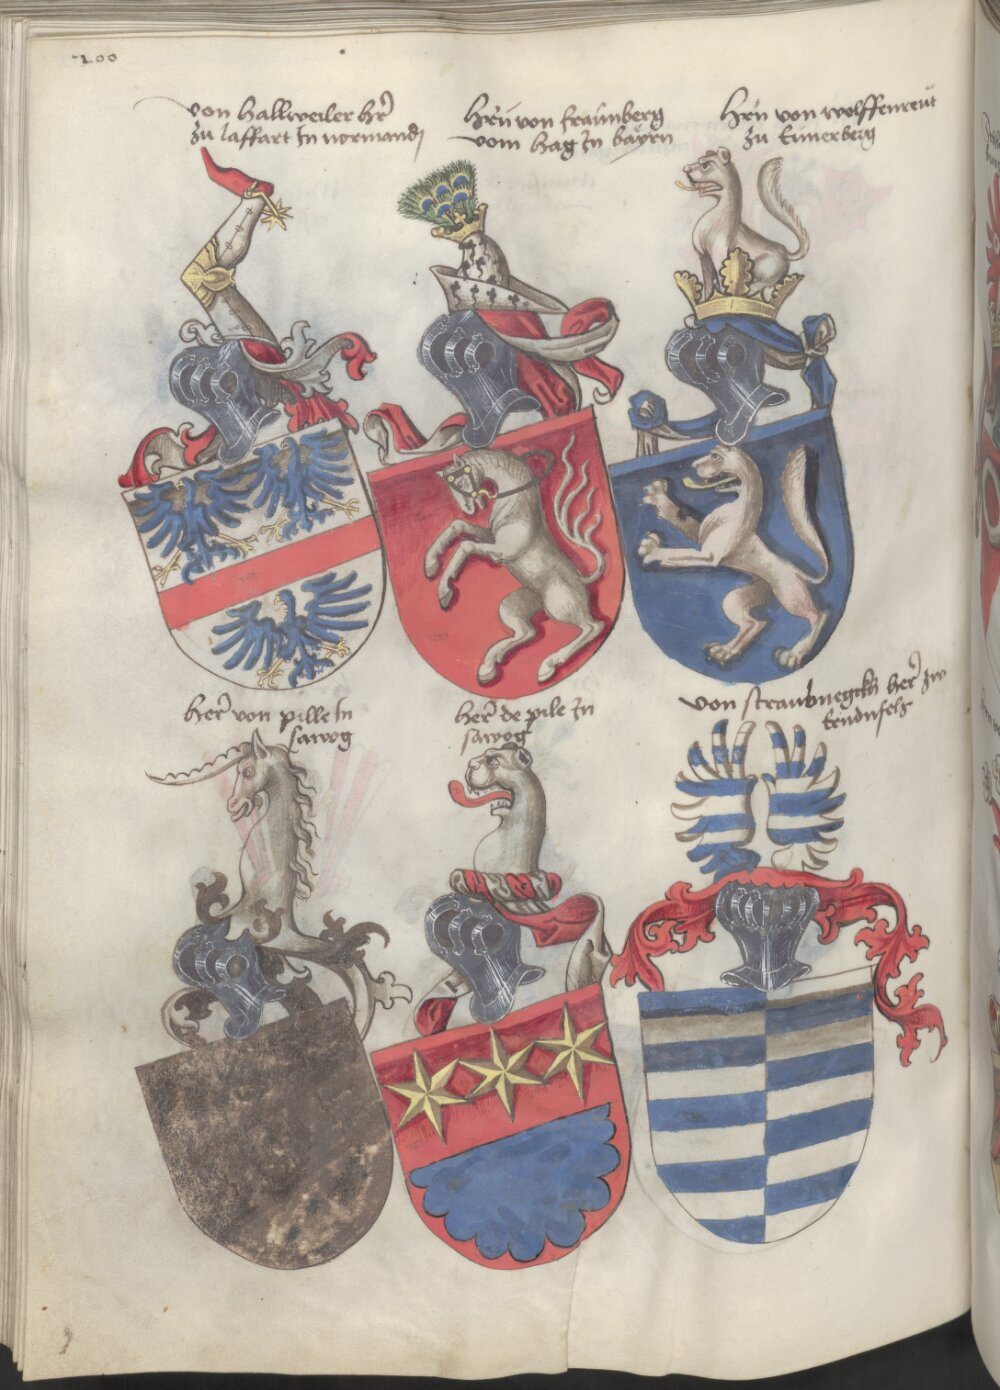 200
von Hallweiler her
zu laffart In normandj
Hern von fraunberg
vom Hag In bayrn
Hern von wolffenreut
zu Eunerberg
Her von pille In
savog
Her de pile In
savog
von straubnegckh her zw